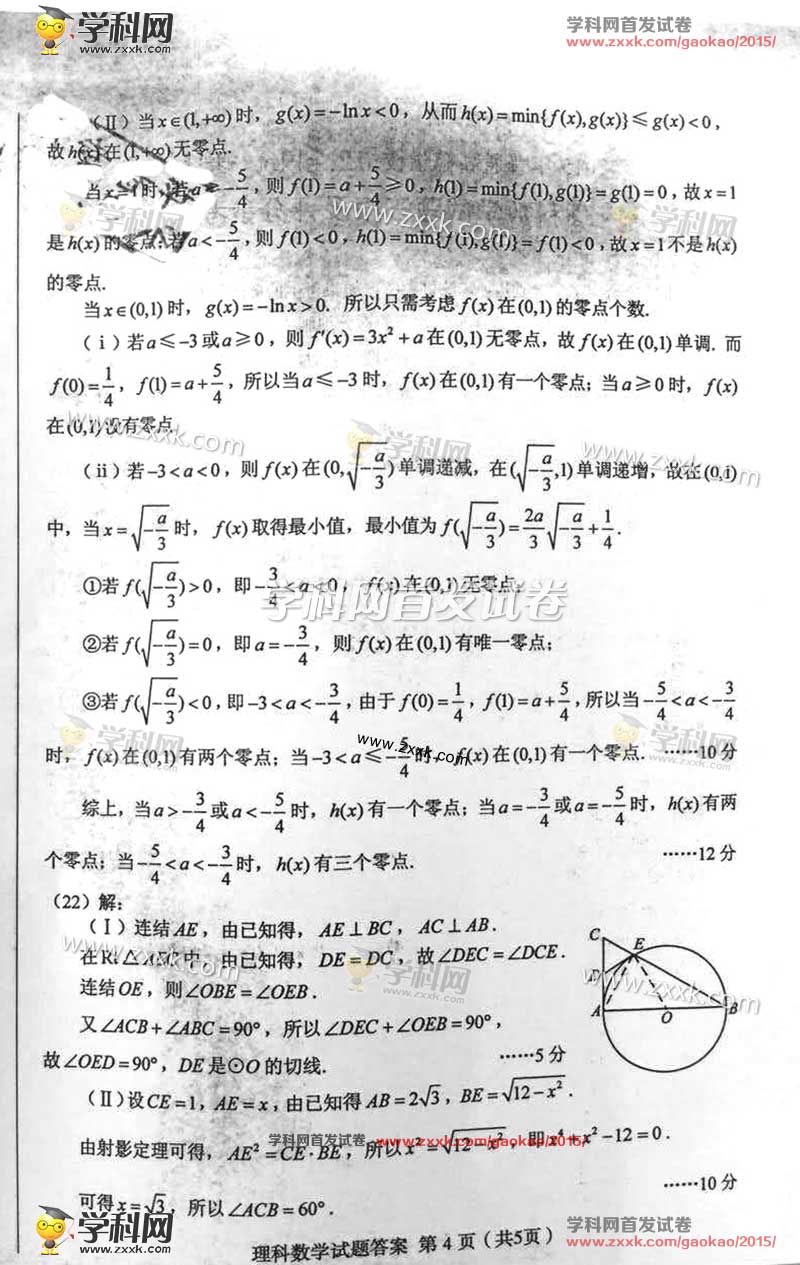 学科网
www.zxxk.com
学科网首发试卷
www.zxxk.com/gaokao/2015/
(Ⅱ)当x∈(1,+∞)时, g(x)=-lnx<0, 从而h(x)=min{f(x),g(x)}≤g(x)<0,
故h(x)在(1,+∞)无零点.
当x=1时,若a≥-5/4, 则f(1)=a+5/4≥0, h(1)=min{f(1),g(1)}=g(1)=0, 故x=1
www.zxxk.com
学科网
是h(x)的零点;若a<-5/4, 则f(1)<0, h(1)=min{f(1),g(1)}=f(1)<0, 故x=1不是h(x)
的零点.
当x∈(0,1)时, g(x)=-lnx>0. 所以只需考虑f(x)在(0,1)的零点个数.
(ⅰ)若a≤-3或a≥0, 则f′(x)=3x²+a在(0,1)无零点, 故f(x)在(0,1)单调. 而
f(0)=1/4, f(1)=a+5/4, 所以当a≤-3时, f(x)在(0,1)有一个零点; 当a≥0时, f(x)
在(0,1)没有零点.
www.zxxk.com
学科网
www.zxxk.com
(ⅱ)若-3<a<0, 则f(x)在(0,√(-a/3))单调递减, 在(√(-a/3),1)单调递增, 故在(0,1)
中, 当x=√(-a/3)时, f(x)取得最小值, 最小值为f(√(-a/3))=2a/3√(-a/3)+1/4.
①若f(√(-a/3))>0, 即-3/4<a<0, f(x)在(0,1)无零点;
学科网首发试卷
②若f(√(-a/3))=0, 即a=-3/4, 则f(x)在(0,1)有唯一零点;
③若f(√(-a/3))<0, 即-3<a<-3/4, 由于f(0)=1/4, f(1)=a+5/4, 所以当-5/4<a<-3/4
学科网
www.zxxk.com
学科网
时, f(x)在(0,1)有两个零点; 当-3<a≤-5/4时, f(x)在(0,1)有一个零点. ……10分
综上, 当a>-3/4或a<-5/4时, h(x)有一个零点; 当a=-3/4或a=-5/4时, h(x)有两
个零点; 当-5/4<a<-3/4时, h(x)有三个零点. ……12分
(22)解:
(Ⅰ)连结AE, 由已知得, AE⊥BC, AC⊥AB.
在Rt△AEC中, 由已知得, DE=DC, 故∠DEC=∠DCE.
www.zxxk.com
学科网
www.zxxk.com
连结OE, 则∠OBE=∠OEB.
又∠ACB+∠ABC=90°, 所以∠DEC+∠OEB=90°,
故∠OED=90°, DE是⊙O的切线. ……5分
C
E
D
A
O
B
(Ⅱ)设CE=1, AE=x, 由已知得AB=2√3, BE=√(12-x²).
由射影定理可得, AE²=CE·BE, 所以x²=√(12-x²), 即x⁴+x²-12=0.
学科网首发试卷 www.zxxk.com/gaokao/2015/
可得x=√3, 所以∠ACB=60°. ……10分
学科网
www.zxxk.com
理科数学试题答案 第4页(共5页)
学科网首发试卷
www.zxxk.com/gaokao/2015/